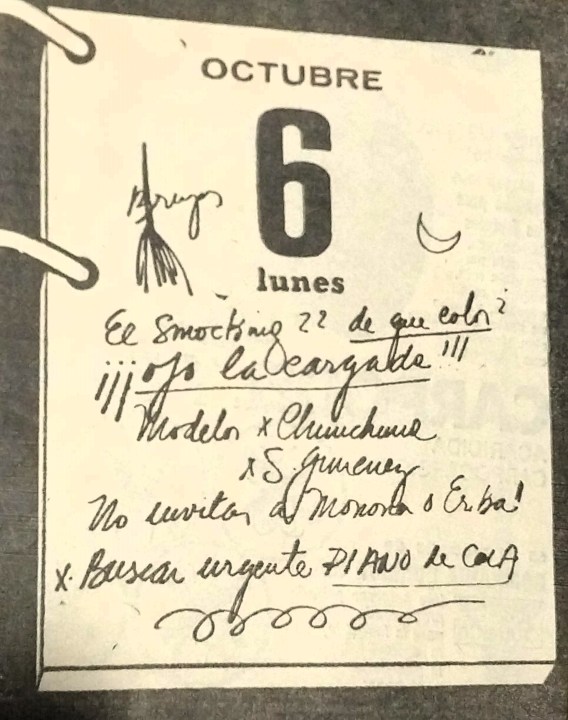 OCTUBRE
6
Brujas
lunes
El Smocking ?? de que color?
¡¡¡ojo la cargada!!!
Modelos x Chunchuna
x S. Gimenez
No invitar a Monona o Erba!
x Buscar urgente PIANO de COLA